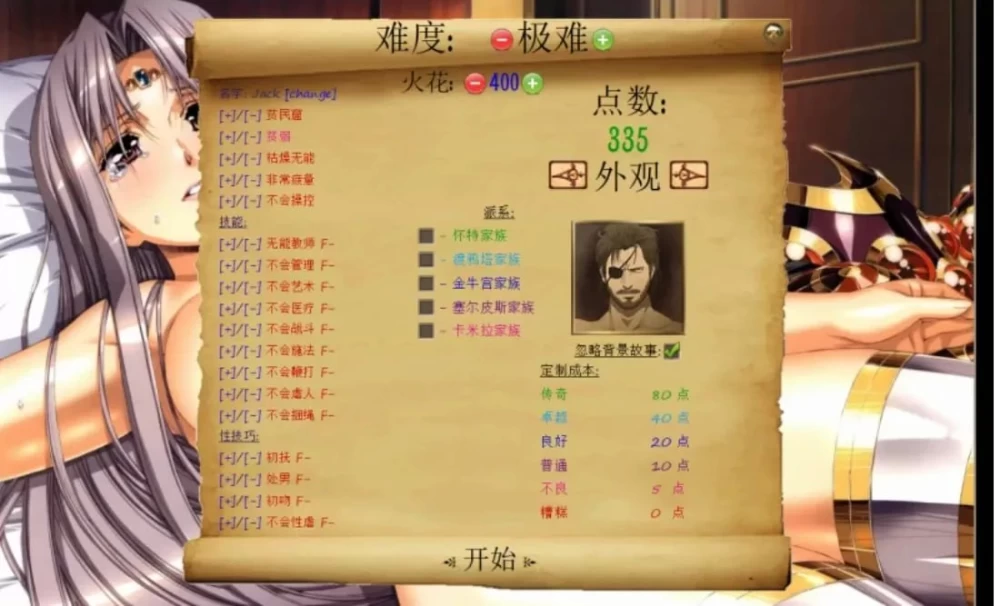 难度: 极难
火花: 400
名字: Jack [change]
[+]/[-] 贫民窟
[+]/[-] 孱弱
[+]/[-] 枯燥无能
[+]/[-] 非常疲量
[+]/[-] 不会操控
技能:
[+]/[-] 无能教师 F-
[+]/[-] 不会管理 F-
[+]/[-] 不会艺术 F-
[+]/[-] 不会医疗 F-
[+]/[-] 不会战斗 F-
[+]/[-] 不会施法 F-
[+]/[-] 不会鞭打 F-
[+]/[-] 不会虐人 F-
[+]/[-] 不会捆绳 F-
性技巧:
[+]/[-] 初抚 F-
[+]/[-] 处男 F-
[+]/[-] 初吻 F-
[+]/[-] 不会性虐 F-
派系:
- 怀特家族
- 家族
- 金牛宫家族
- 塞尔皮斯家族
- 卡米拉家族
点数:
335
外观
忽略背景故事:
定制成本:
传奇 80 点
卓越 40 点
良好 20 点
普通 10 点
不良 5 点
糟糕 0 点
开始